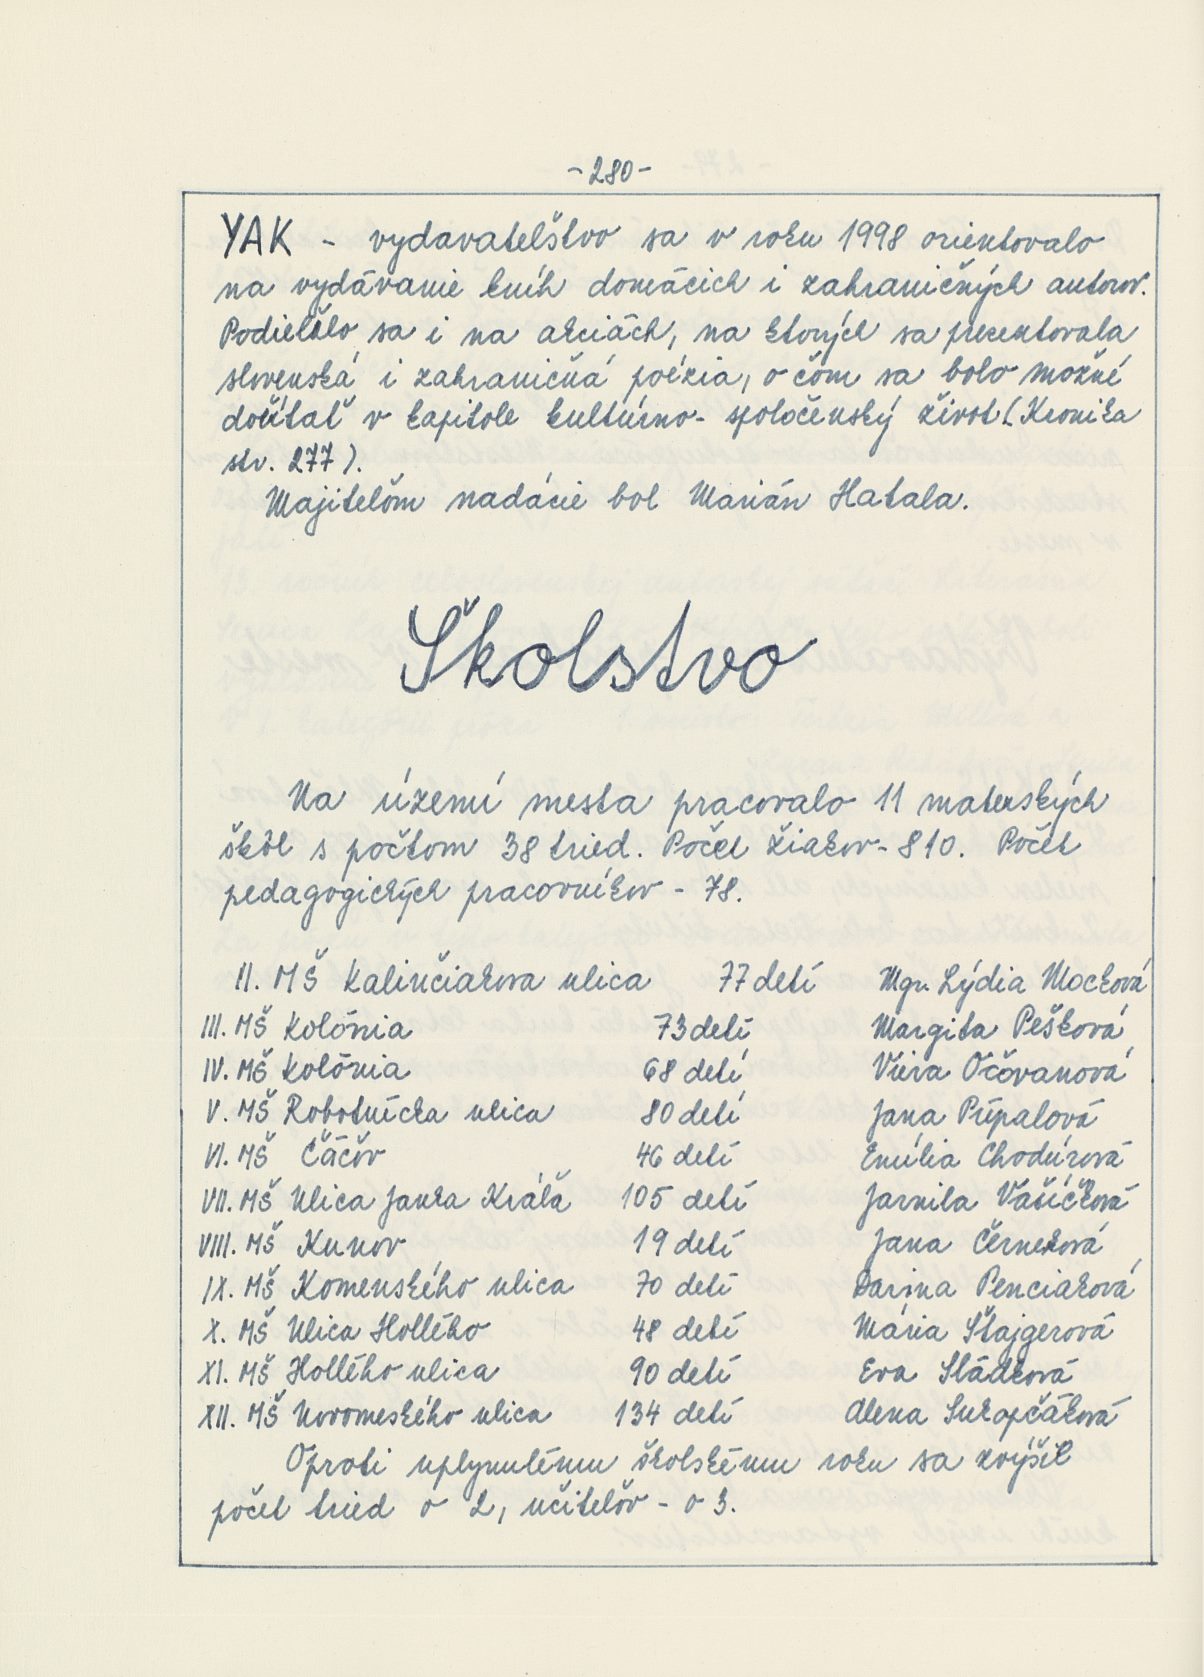 -280-
YAK - vydavateľstvo sa v roku 1998 orientovalo
na vydávanie kníh domácich i zahraničných autorov.
Podieľalo sa i na akciách, na ktorých sa prezentovala
slovenská i zahraničná poézia, o čom sa bolo možné
dočítať v kapitole kultúrno- spoločenský život (Kronika
str. 277).
Majiteľom nadácie bol Marián Hatala.
Školstvo
Na území mesta pracovalo 11 materských
škôl s počtom 38 tried. Počet žiakov - 810. Počet
pedagogických pracovníkov - 78.
II. MŠ Kalinčiakova ulica 77 detí Mgr. Lýdia Mocková
III. MŠ Kolónia 73 detí Margita Pešková
IV. MŠ Kolónia 68 detí Viera Očovanová
V. MŠ Robotnícka ulica 80 detí Jana Prípalová
VI. MŠ Čáčov 46 detí Emília Chodúrová
VII. MŠ Ulica Janka Kráľa 105 detí Jarmila Vašíčková
VIII. MŠ Kunov 19 detí Jana Černeková
IX. MŠ Komenského ulica 70 detí Darina Penciaková
X. MŠ Ulica Hollého 48 detí Mária Štajgerová
XI. MŠ Hollého ulica 90 detí Eva Sládková
XII. MŠ Novomeského ulica 134 detí Alena Sukopčáková
Oproti uplynulému školskému roku sa zvýšil
počet tried o 2, učiteľov - o 3.